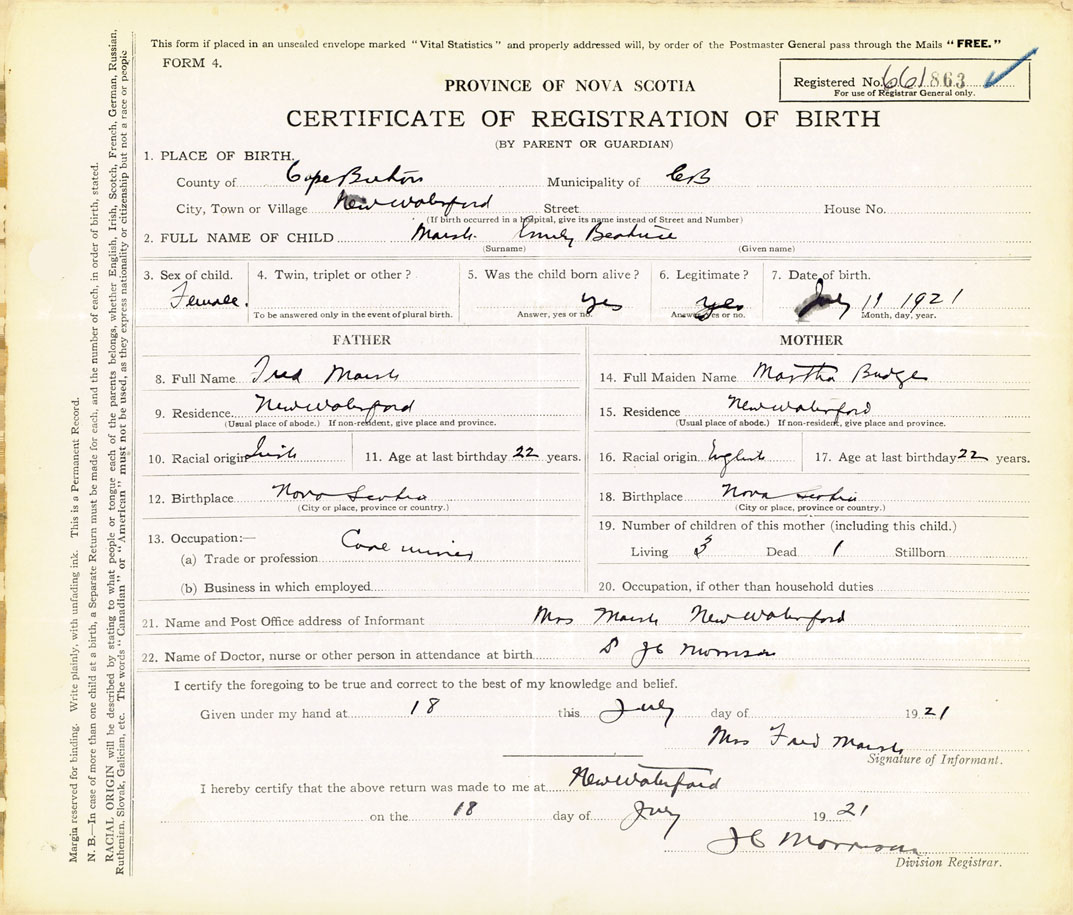 This form if placed in an unsealed envelope marked "Vital Statistics" and properly addressed will, by order of the Postmaster General pass through the Mails "FREE."
FORM 4.
Registered No. 661863
For use of Registrar General only.
PROVINCE OF NOVA SCOTIA
CERTIFICATE OF REGISTRATION OF BIRTH
(BY PARENT OR GUARDIAN)
1. PLACE OF BIRTH.
County of Cape Breton Municipality of CB
City, Town or Village New Waterford Street House No.
(If birth occurred in a hospital, give its name instead of Street and Number)
2. FULL NAME OF CHILD Marsh Emily Beatrice
(Surname) (Given name)
3. Sex of child. 4. Twin, triplet or other? 5. Was the child born alive? 6. Legitimate? 7. Date of birth.
Female. yes yes July 11 1921
To be answered only in the event of plural birth. Answer, yes or no. Answer, yes or no. Month, day, year.
FATHER MOTHER
8. Full Name Fred Marsh 14. Full Maiden Name Martha Budge
9. Residence New Waterford 15. Residence New Waterford
(Usual place of abode.) If non-resident, give place and province. (Usual place of abode.) If non-resident, give place and province.
10. Racial origin Irish 11. Age at last birthday 22 years. 16. Racial origin English 17. Age at last birthday 22 years.
12. Birthplace Nova Scotia 18. Birthplace Nova Scotia
(City or place, province or country.) (City or place, province or country.)
13. Occupation:— 19. Number of children of this mother (including this child.)
(a) Trade or profession miner Living 3 Dead 1 Stillborn
(b) Business in which employed 20. Occupation, if other than household duties
21. Name and Post Office address of Informant Mrs Marsh New Waterford
22. Name of Doctor, nurse or other person in attendance at birth J C Morrison
I certify the foregoing to be true and correct to the best of my knowledge and belief.
Given under my hand at 18 this July day of 1921
Mrs Fred Marsh
Signature of Informant.
I hereby certify that the above return was made to me at New Waterford
on the 18 day of July 1921
J C Morrison
Division Registrar.
Margin reserved for binding. Write plainly, with unfading ink. This is a Permanent Record.
N. B.—In case of more than one child at a birth, a Separate Return must be made for each, and the number of each, in order of birth, stated.
RACIAL ORIGIN will be described by stating to what people or tongue each of the parents belongs, whether English, Irish, Scotch, French, German, Russian,
Ruthenian, Slovak, Galician, etc. The words "Canadian" or "American" must not be used, as they express nationality or citizenship but not a race or people.